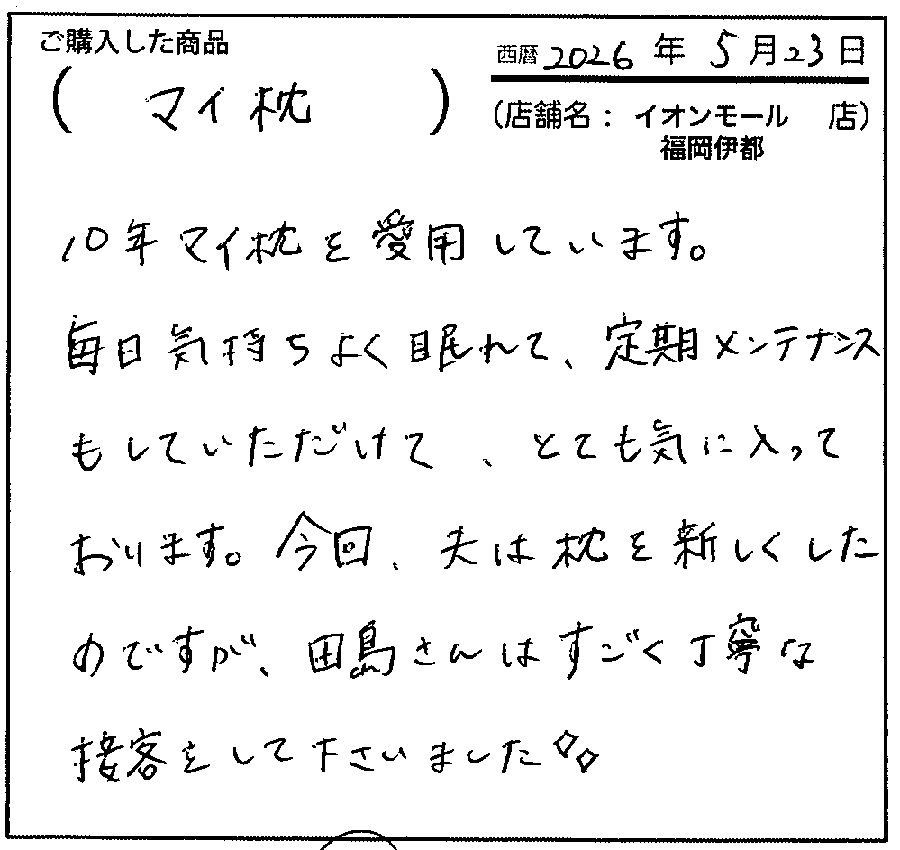 ご購入した商品
西暦 2026 年 5 月 23 日
( マイ枕 )
(店舗名: イオンモール 店)
福岡伊都
10年マイ枕を愛用しています。
毎日気持ちよく眠れて、定期メンテナンス
もしていただけて、とても気に入って
おります。今回、夫は枕を新しくした
のですが、田島さんはすごく丁寧な
接客をして下さいました◇◇